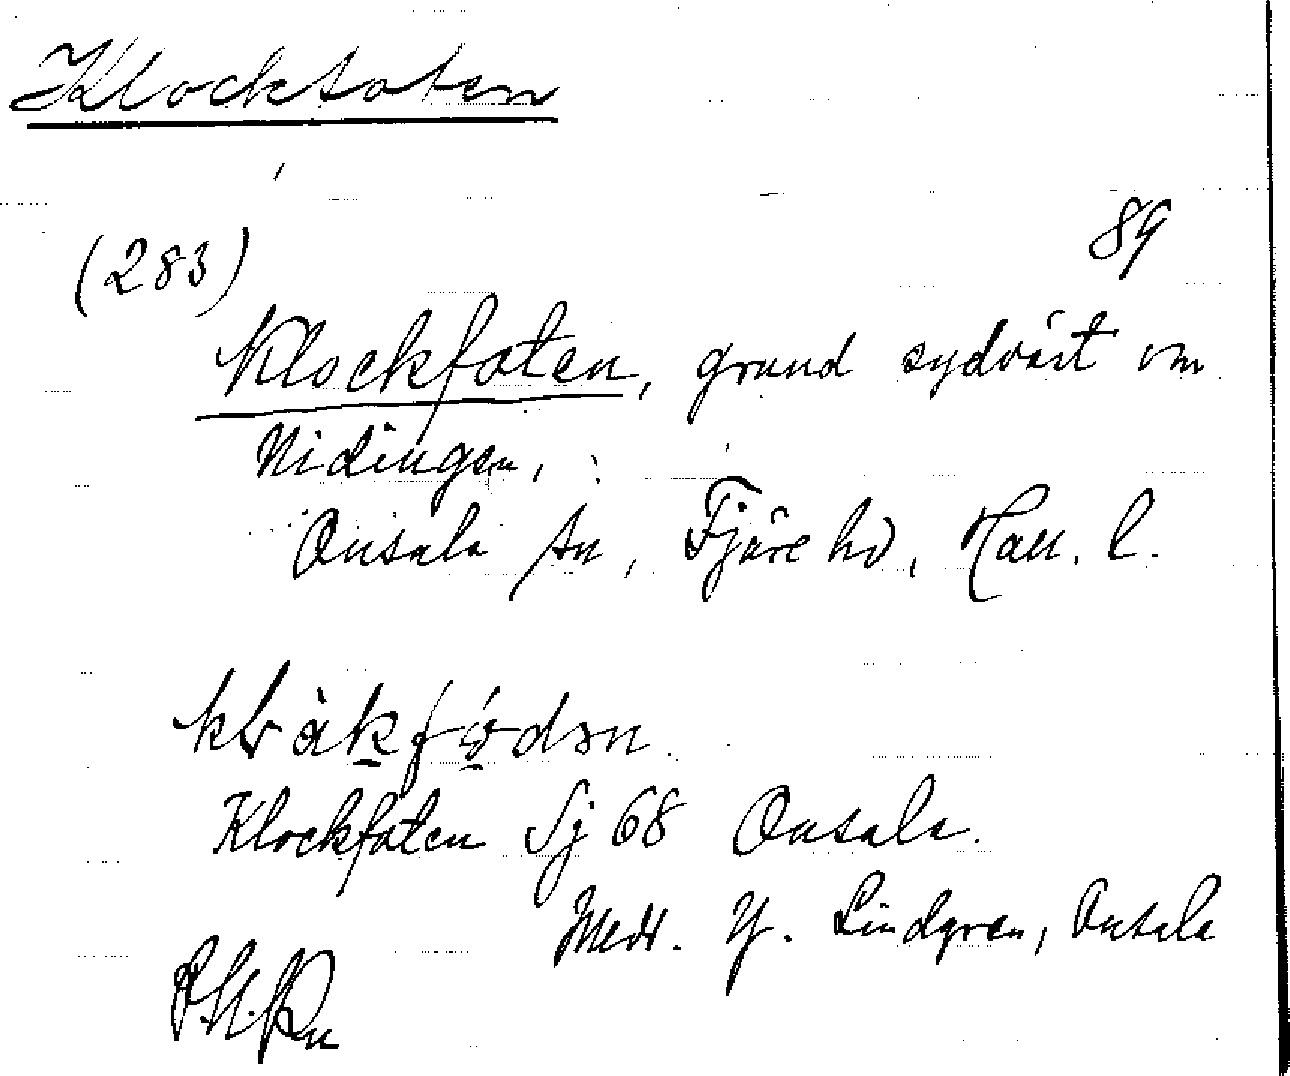 Klockfoten
(283)
89
Klockfoten, grund sydväst om
Nidingen,
Onsala sn, Fjäre hd, Hall. l.
Klockfoten Sj 68 Onsala.
Medd. Y. Lindgren, Onsala